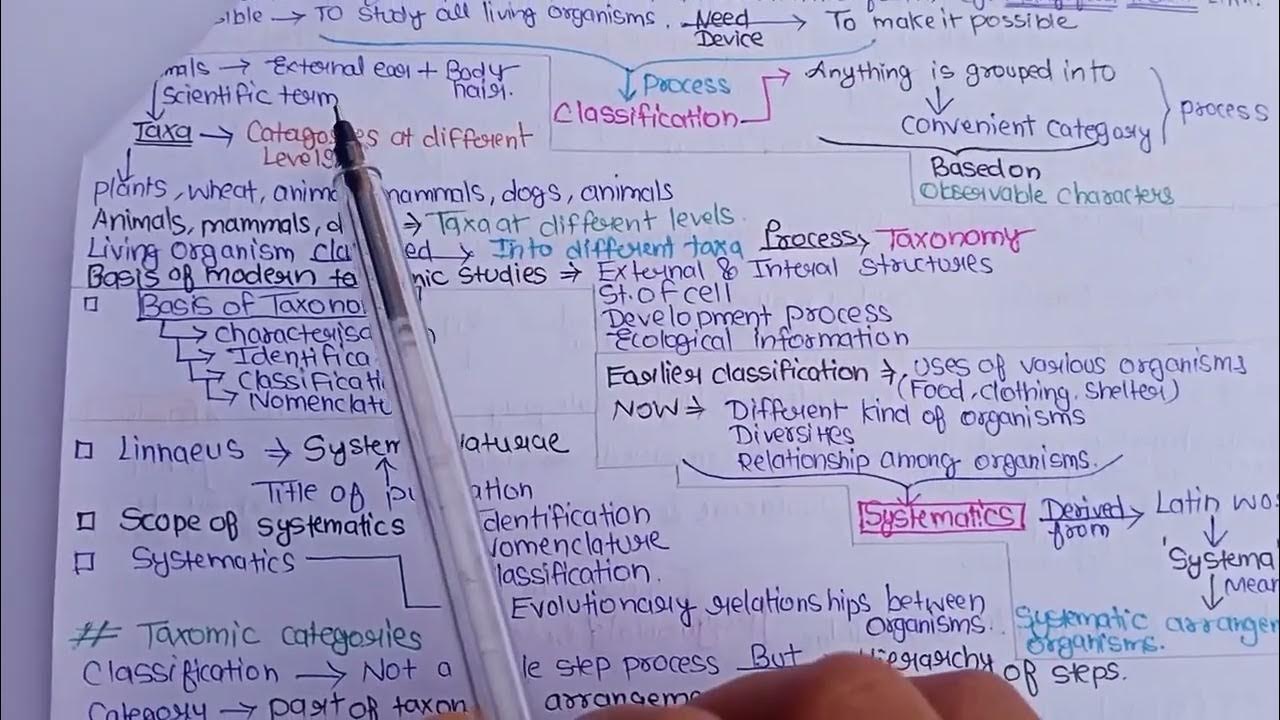 sible → To study all living organisms. Need Device → To make it possible
mals → External ear + Body hair.
Scientific term
Process
Classification → Anything is grouped into
convenient category
process
Taxa → Catago es at different Levels
Based on
Observable characters
plants, wheat, anima mammals, dogs, animals
Animals, mammals, d ⇒ Taxa at different levels.
Living organism cla ed → Into different taxa Process, Taxonomy
Basis of modern ta mic studies ⇒ External & Interal structures
St. of cell
Development process
Ecological information
Basis of Taxono
characterisa
Identifica
Classificati
Nomenclatu
Earlier classification ⇒ Uses of various organisms
(Food, clothing, Shelter)
NOW ⇒ Different kind of organisms
Diversites
Relationship among organisms.
Linnaeus ⇒ System aturae
Title of pu ation
Systematics Derived from → Latin wo
'Systema
Mean
Systematic arrangem
organisms.
Scope of systematics
dentification
Nomenclature
lassification.
Systematics
Evolutionary relationships between
organisms.
# Taxomic categories
Classification → Not a le step process But hierarchy of steps.
Category → part of taxon arrangeme